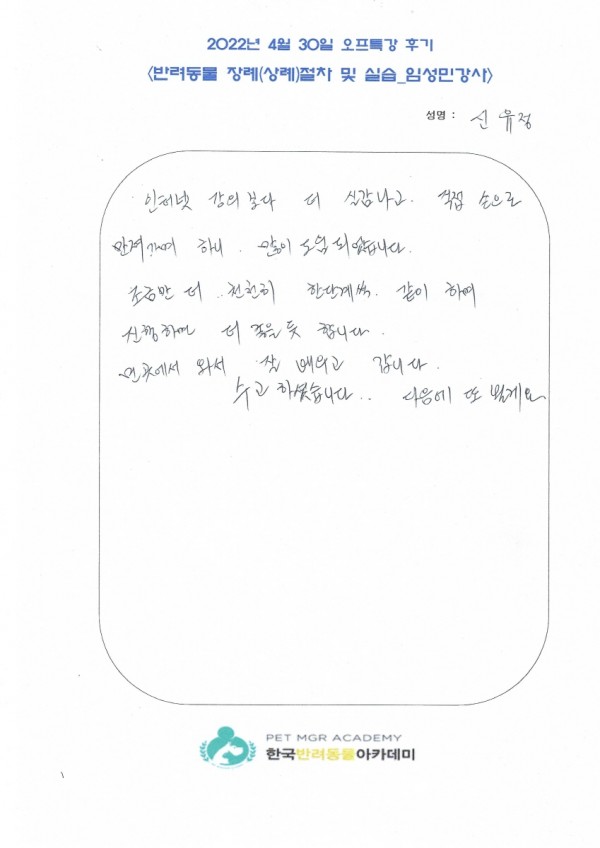 2022년 4월 30일 오프특강 후기
<반려동물 장례(상례)절차 및 실습_임성민강사>
성명 : 신유정
인터넷 강의보다 더 실감나고. 직접 손으로
만져가며 하니. 많이 도움 되었습니다.
조금만 더.. 천천히 한단계씩. 같이 하며
진행하면 더 좋을듯 합니다.
먼곳에서 와서 잘 배우고 갑니다.
수고하셨습니다.. 다음에 또 뵐게요
PET MGR ACADEMY
한국반려동물아카데미